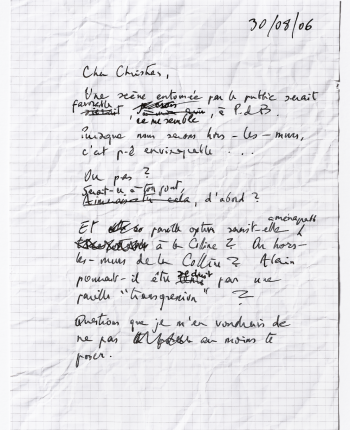 30/08/06
Cher Christian,
Une scène entourée par le public serait
favorable, ce me semble, à P. d. B.
Puisque nous serons hors-les-murs,
c'est p-ê envisageable ...
Ou pas ?
Serait-ce à ton goût, d'abord ?
Et pareille option serait-elle aménageable
à la Colline ? Ou hors-
les-murs de la Colline ? Alain
pourrait-il être séduit par une
pareille "transgression" ?
Questions que je m'en voudrais de
ne pas au moins te
poser.